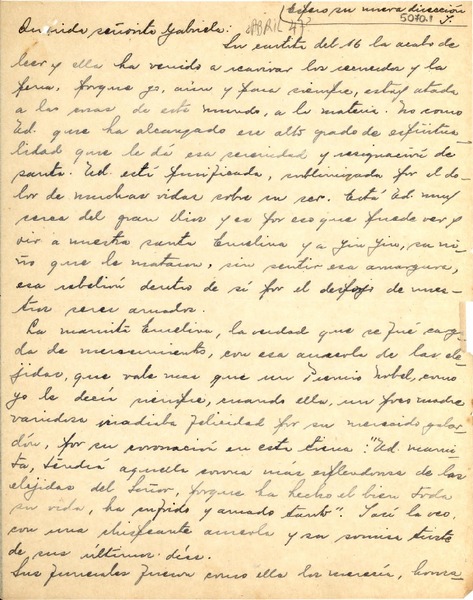 Espero su nueva dirección
50701
Querida señorita Gabriela: ABRIL 4
Su cartita del 16 la acabo de
leer y ella ha venido a reavivar los recuerdos y la
pena, porque yo, aún y para siempre, estoy atada
a las cosas de este mundo, a la materia. No como
Ud. que ha alcanzado ese alto grado de espiritua-
lidad que le dá esa serenidad y resignación de
santa. Ud. está purificada, sublimizada por el do-
lor de muchas vidas sobre su ser. Está Ud. muy
cerca del gran Dios y es por eso que puede ver y
oir a nuestra santa Emelina y a Yin Yin, su ni-
ño que le mataron, sin sentir esa amargura,
esa rebelión dentro de sí por el despojo de nues-
tros seres amados.
La mamita Emelina, la verdad que se fué carga-
da de merecimientos, con esa aureola de las ele-
jidas, que vale mas que un Premio Nobel, como
yo le decía siempre, cuando ella, un poco madre
vanidosa irradiaba felicidad por su merecido galar-
dón, por su coronación en esta tierra: "Ud. mami-
ta, tendrá aquella corona mas esplendorosa de las
elejidas del Señor, porque ha hecho el bien toda
su vida, ha sufrido y amado tanto". Y así la veo,
con una dignificante aureola y su sonrisa triste
de sus últimos días.
Sus funerales fueron como ella los merecía, honra-